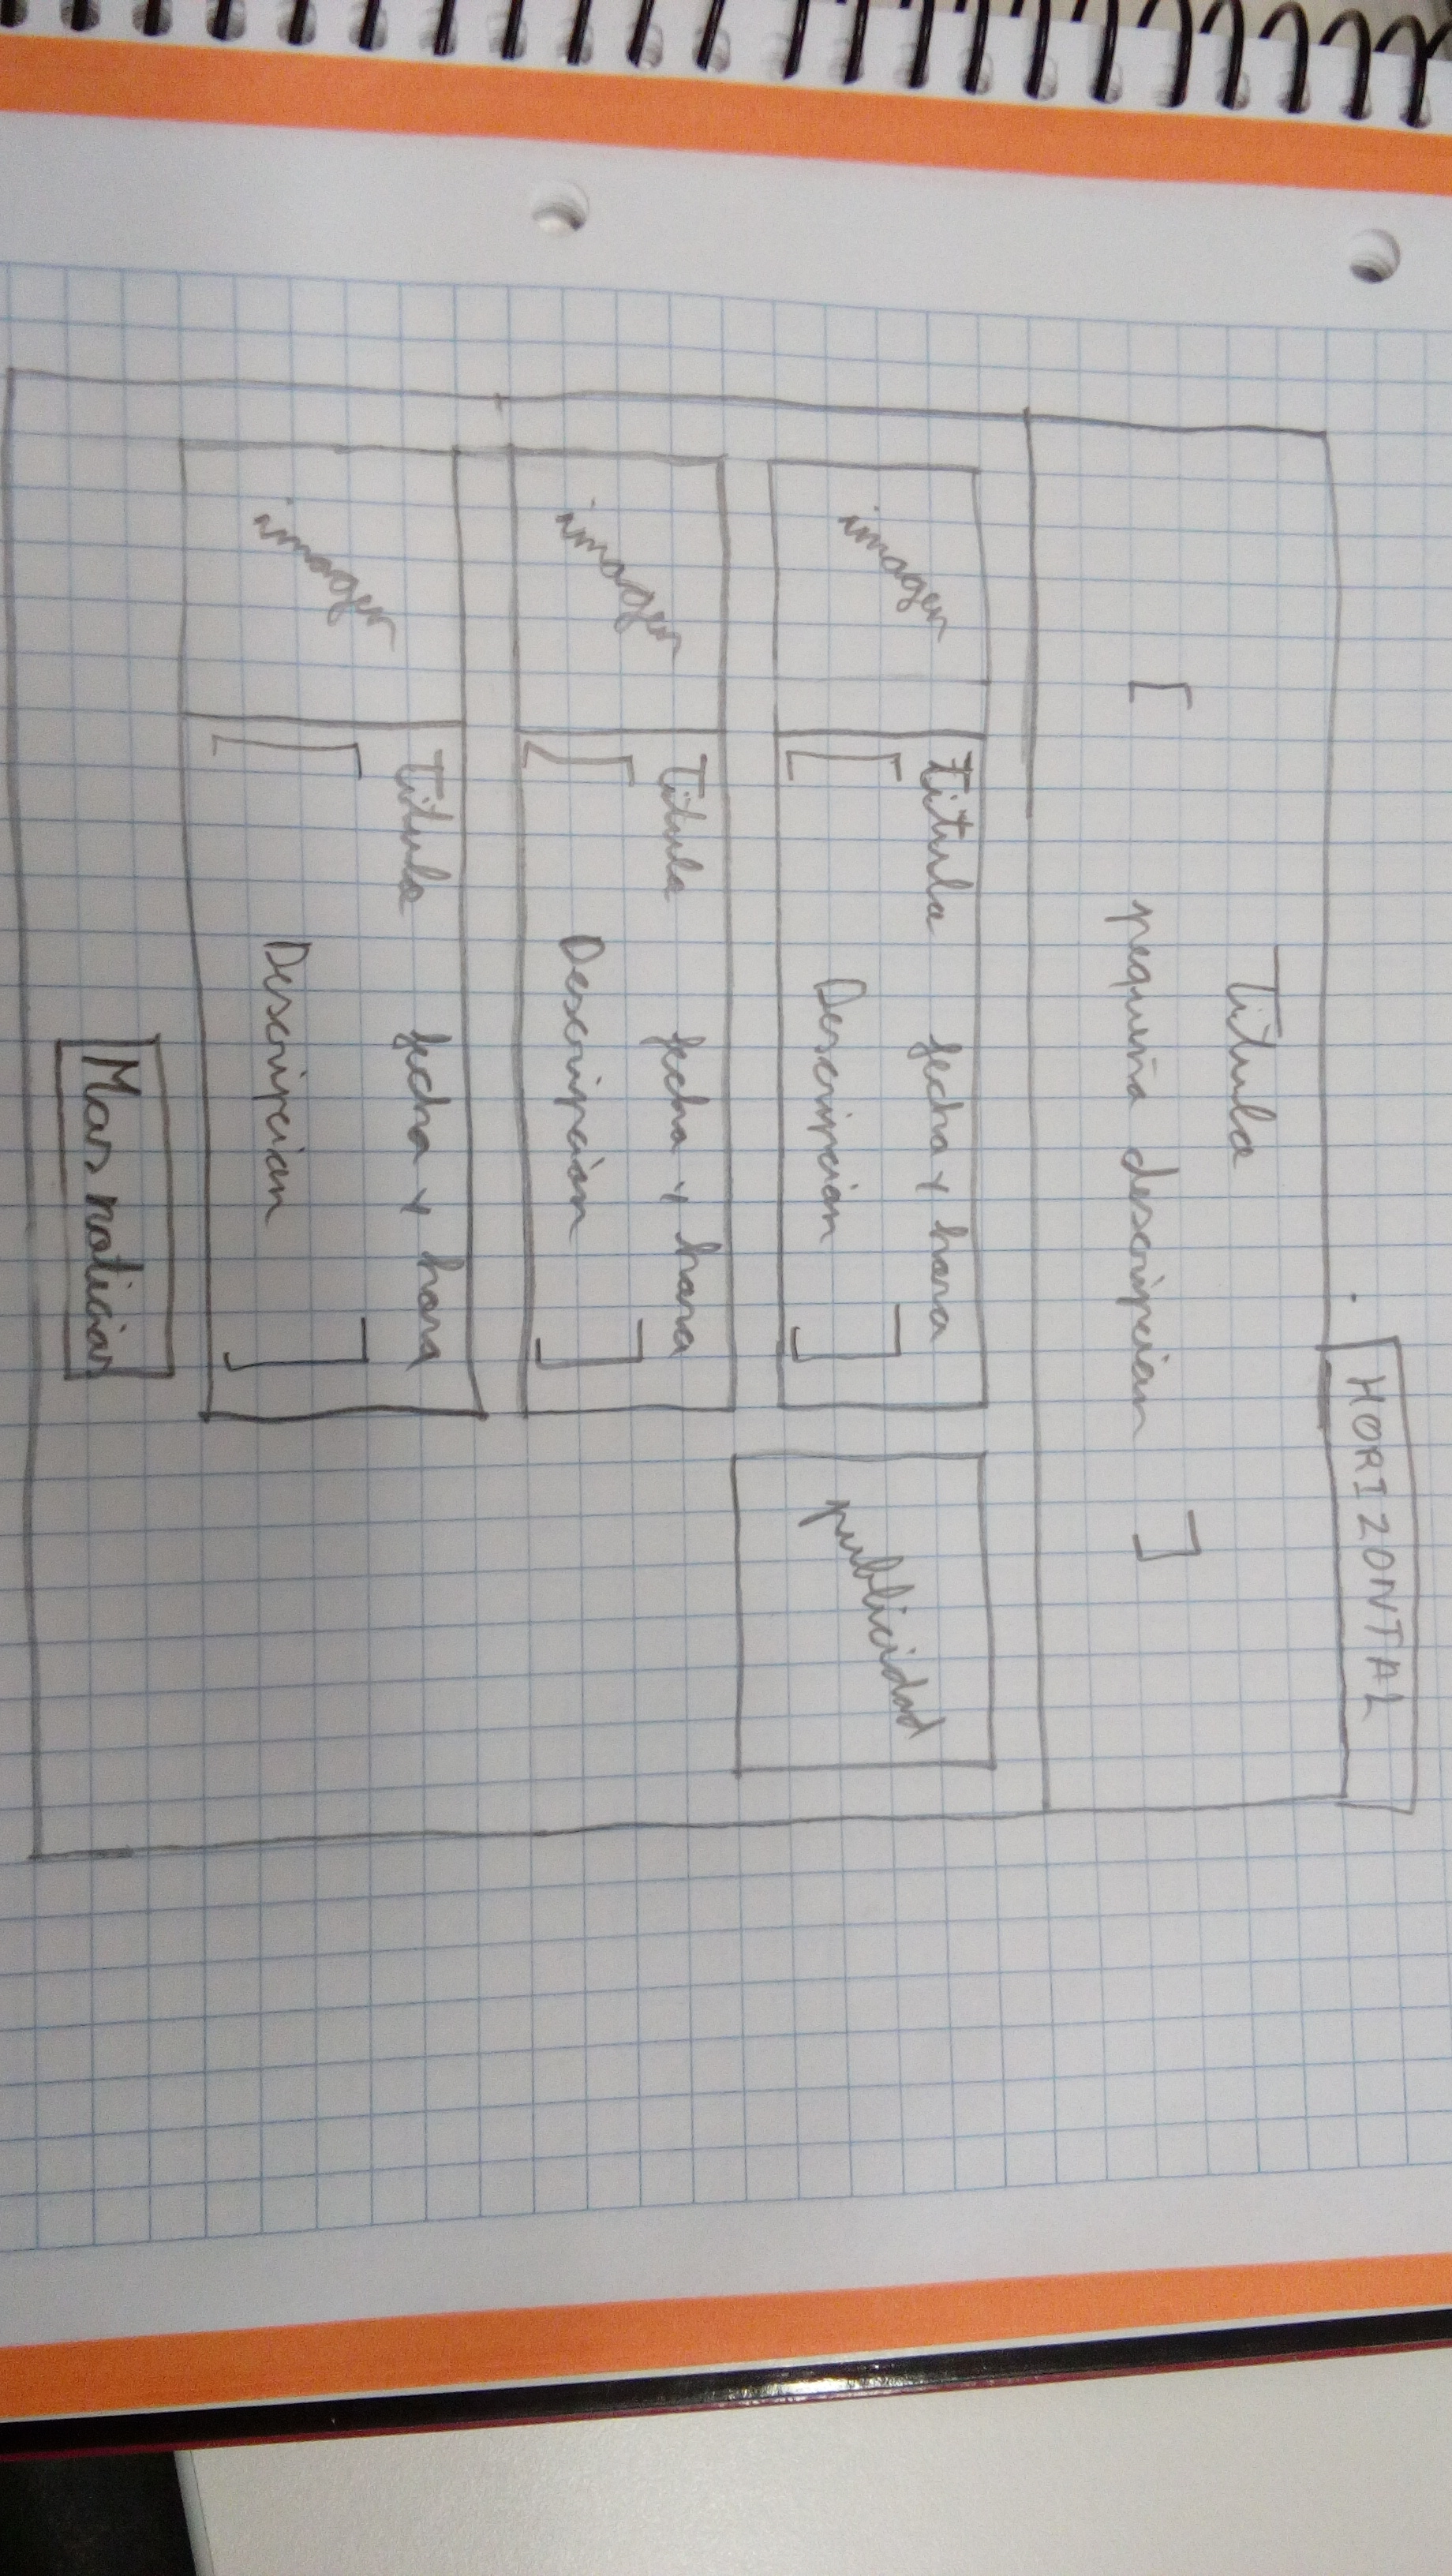 HORIZONTAL
Titulo
[ pequeña descripcion ]
imagen
Titulo fecha y hora
[ Descripcion ]
publicidad
imagen
Titulo fecha y hora
[ Descripción ]
imagen
Titulo fecha y hora
[ Descripcion ]
Mas noticias